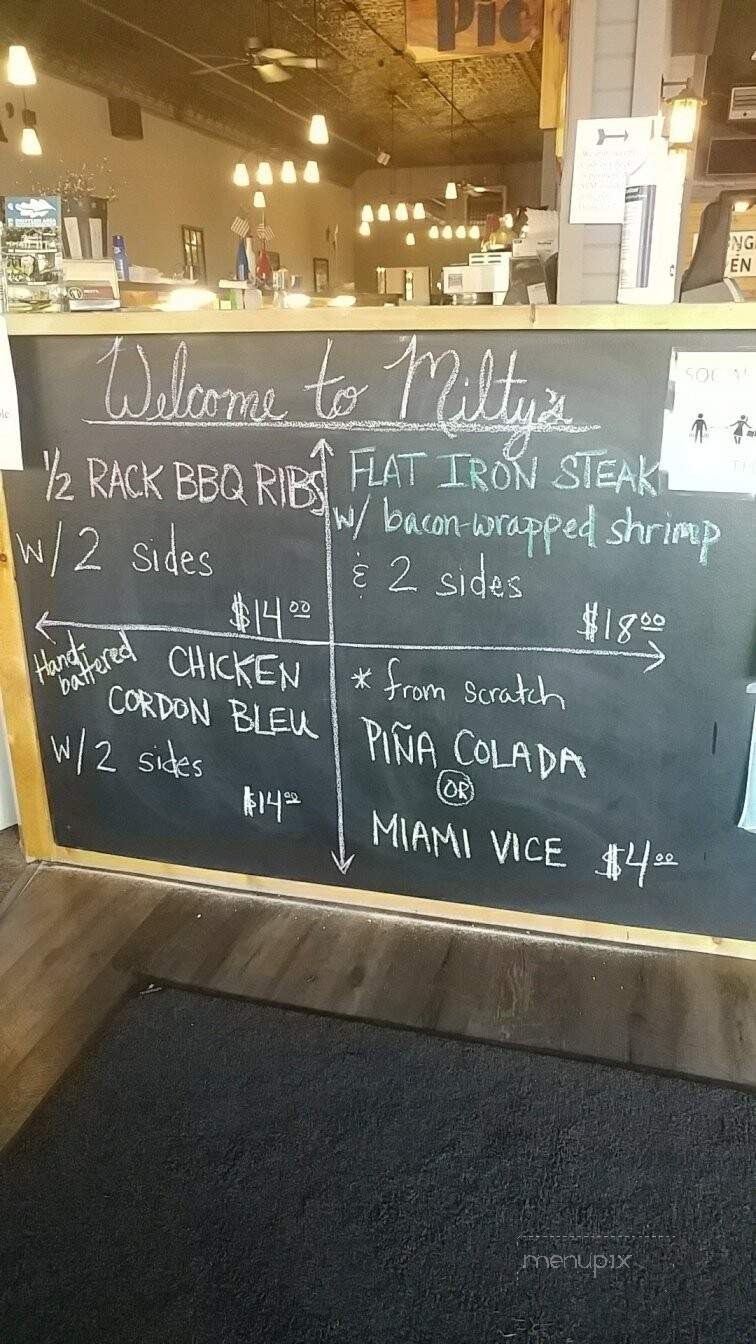 Pic
Welcome to Milty's
1/2 RACK BBQ RIBS
w/ 2 sides
$14.00
FLAT IRON STEAK
w/ bacon-wrapped shrimp
& 2 sides
$18.00
Hand-battered CHICKEN
CORDON BLEU
w/ 2 sides
$14.00
* from scratch
PIÑA COLADA
OR
MIAMI VICE $4.00
menupix